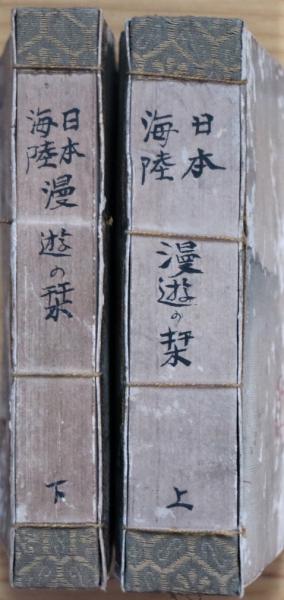 日本
海陸
漫遊の栞
上
日本
海陸
漫遊の栞
下